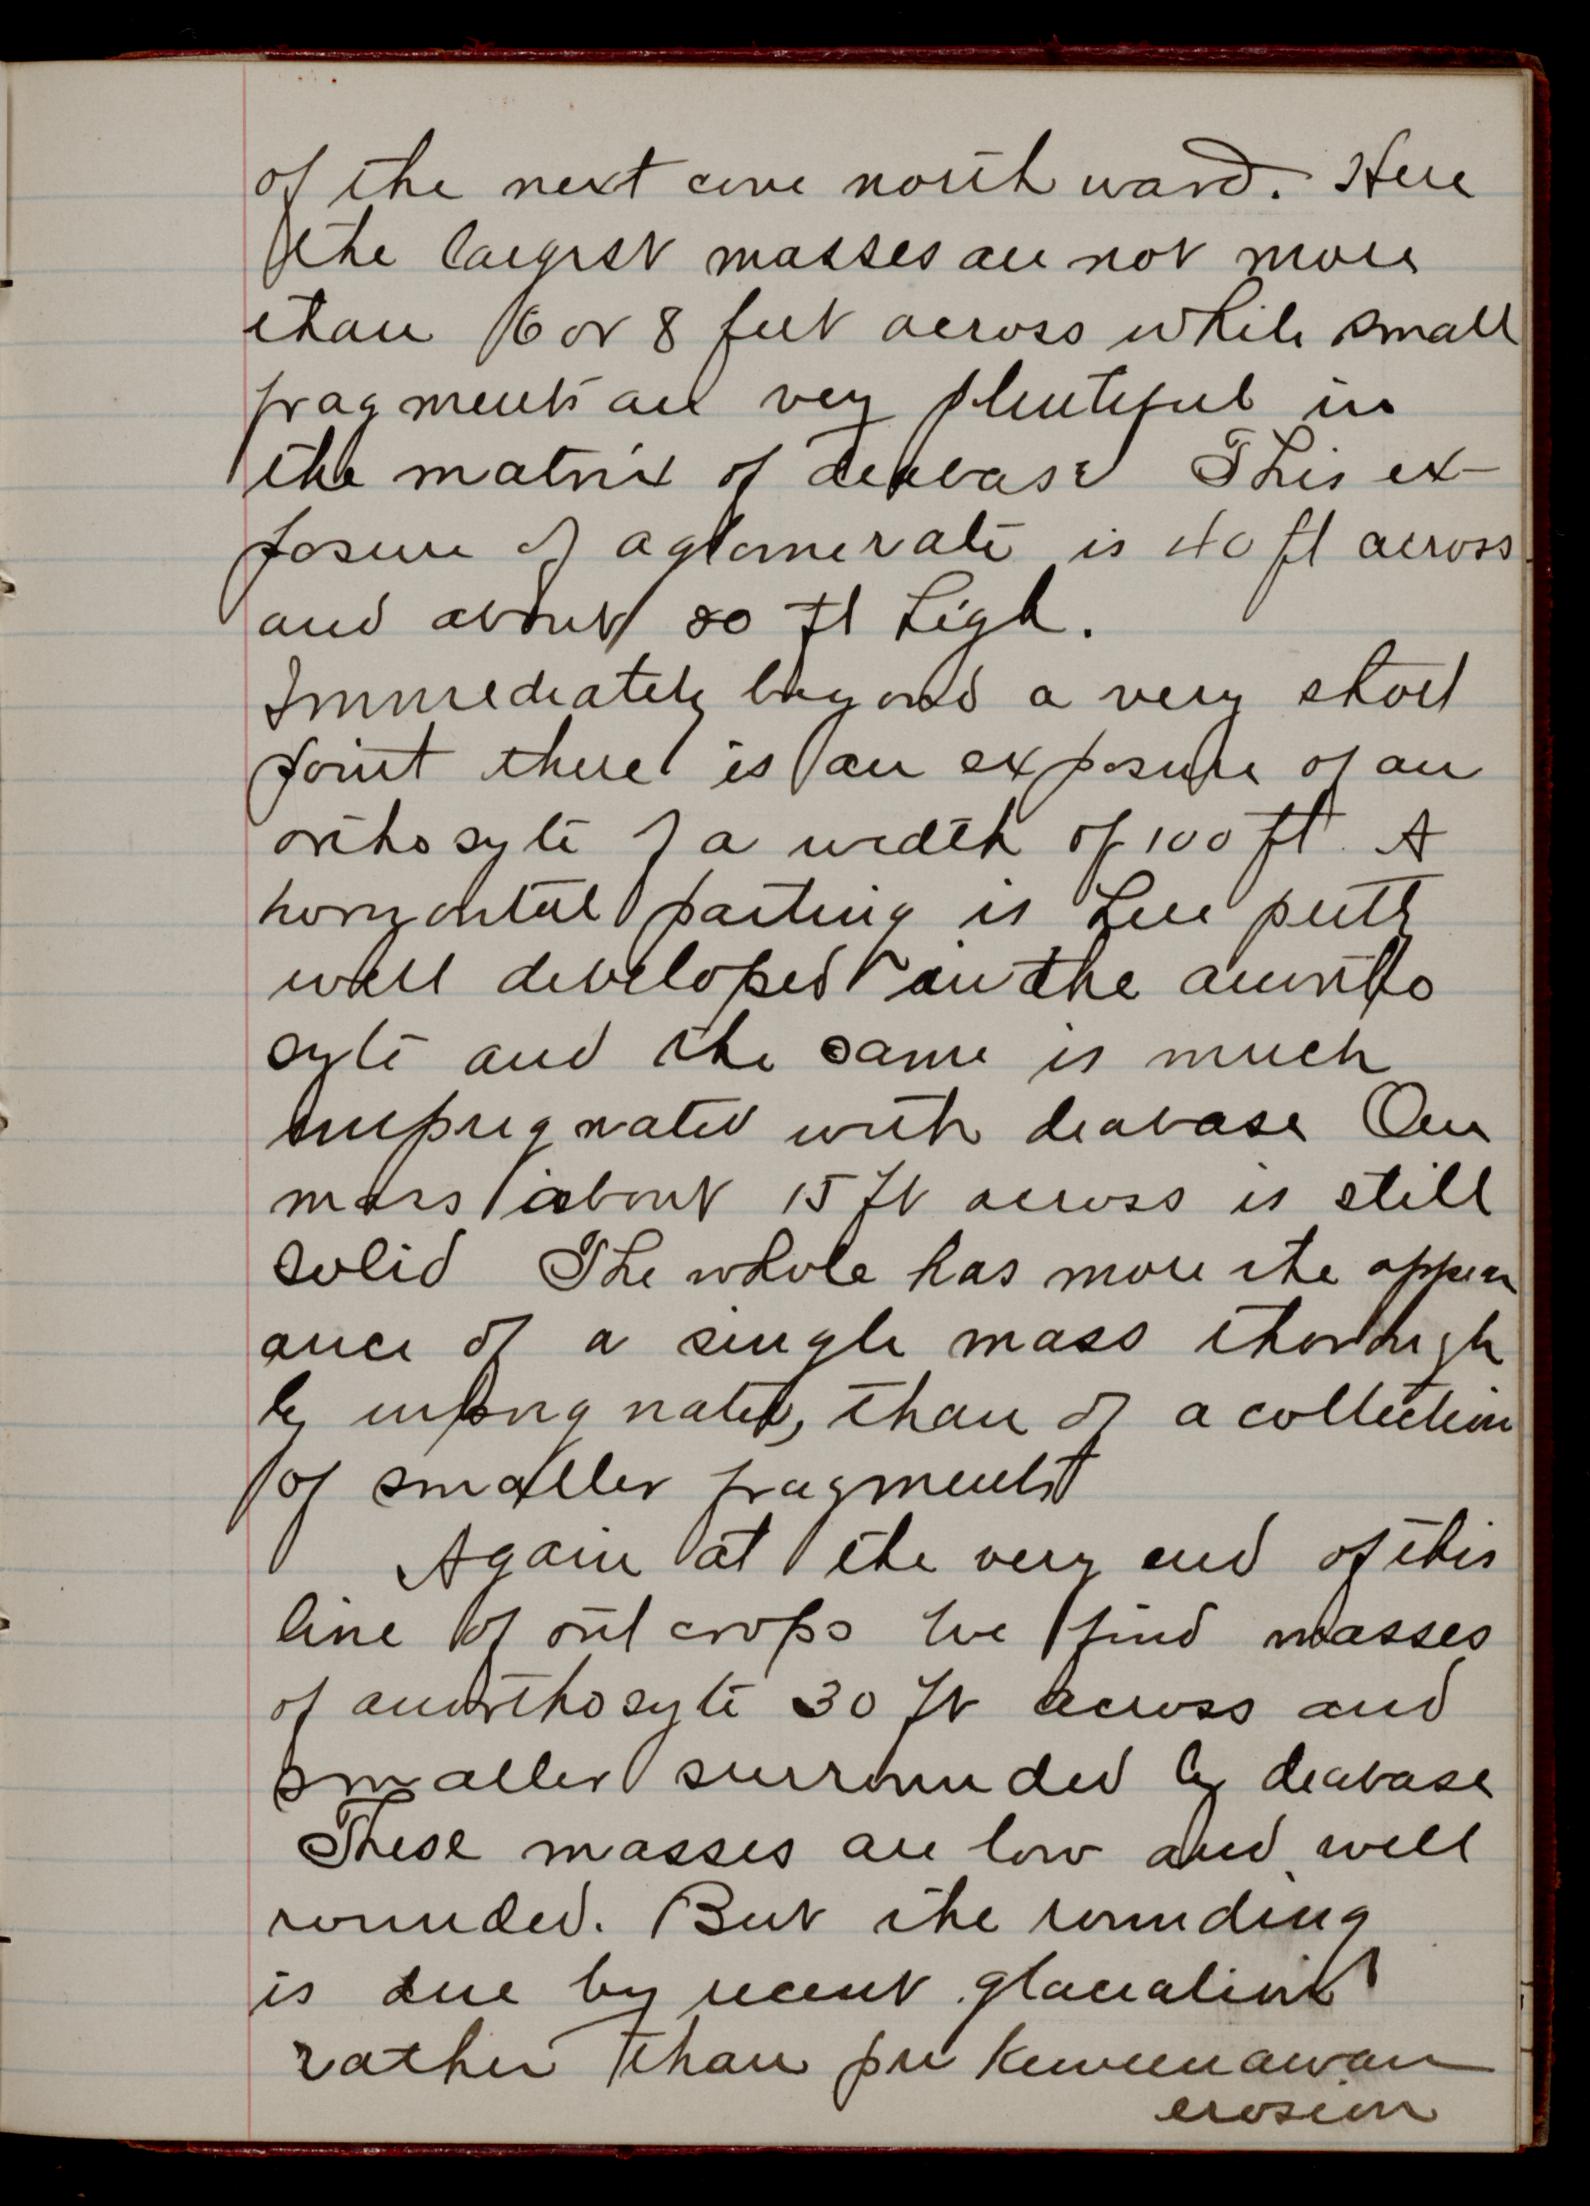 of the next cove north ward. Here
the largest masses are not more
than 6 or 8 feet across while small
fragments are very plentiful in
the matrix of deabase This ex-
posure of aglomerate is 40 ft across
and about 80 ft high.
Immediately beyond a very short
point there is an exposure of an
orthosyte of a width of 100 ft. A
horyontal parting is here pretty
well developed in the anortho
syte and the same is much
impregnated with deabase One
mass about 15 ft across is still
solid The whole has more the appear
ance of a single mass thorough
ly impregnated, than of a collection
of smaller fragments
Again at the very end of this
line of out crops we find masses
of anorthosyte 30 ft across and
smaller surrounded by deabase
These masses are low and well
rounded. But the rounding
is due by recent glaciation
rather than pre Keweenawan
erosion